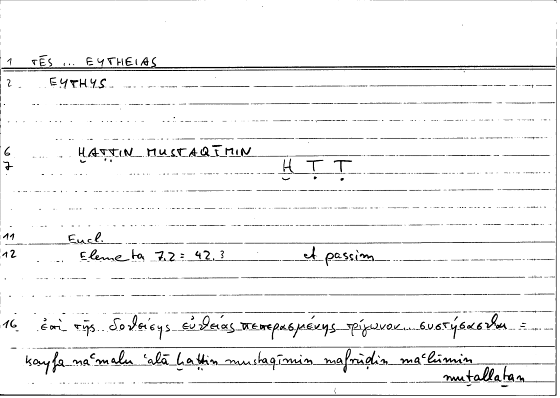 1 TĒS ... EYTHEIAS
2 EYTHYS
6 ḪAṬṬIN MUSTAQĪMIN
7 Ḫ Ṭ Ṭ
11 Eucl.
12 Elementa 7.2 = 42.3 et passim
16 ἐπὶ τῆς δοθείσης εὐθείας πεπερασμένης τρίγωνον... συστήσασθαι =
kayfa naʿmalu ʿalā ḫaṭṭin mustaqīmin mafrūḍin maʿlūmin
muṯallaṯan